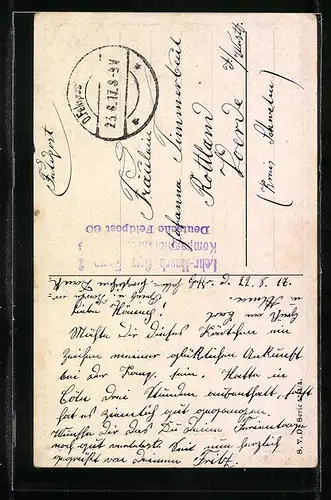 Feldpost
D. Feldpost
25.8.17.8-9V
Fräulein
Johanna Timmerbeil
Rottland
Voerde i/Westf.
(Kreis Schwelm)
Lehr-Masch. Gew. Komp. 3
Kompagnie
Deutsche Feldpost 60
21. 8. 17.
Liebes
Möchte Dir dieses Kärtchen ein
Zeichen meiner glücklichen Ankunft
bei der Komp. sein. Hatte in
Cöln drei Stunden Aufenthalt, sonst
hat es ziemlich gut gegangen.
Wünsche Dir das Du Deine Ferientage
noch gut verlebst. Sei nun herzlich
gegrüßt von Deinem Fritz
S. V. D. Serie